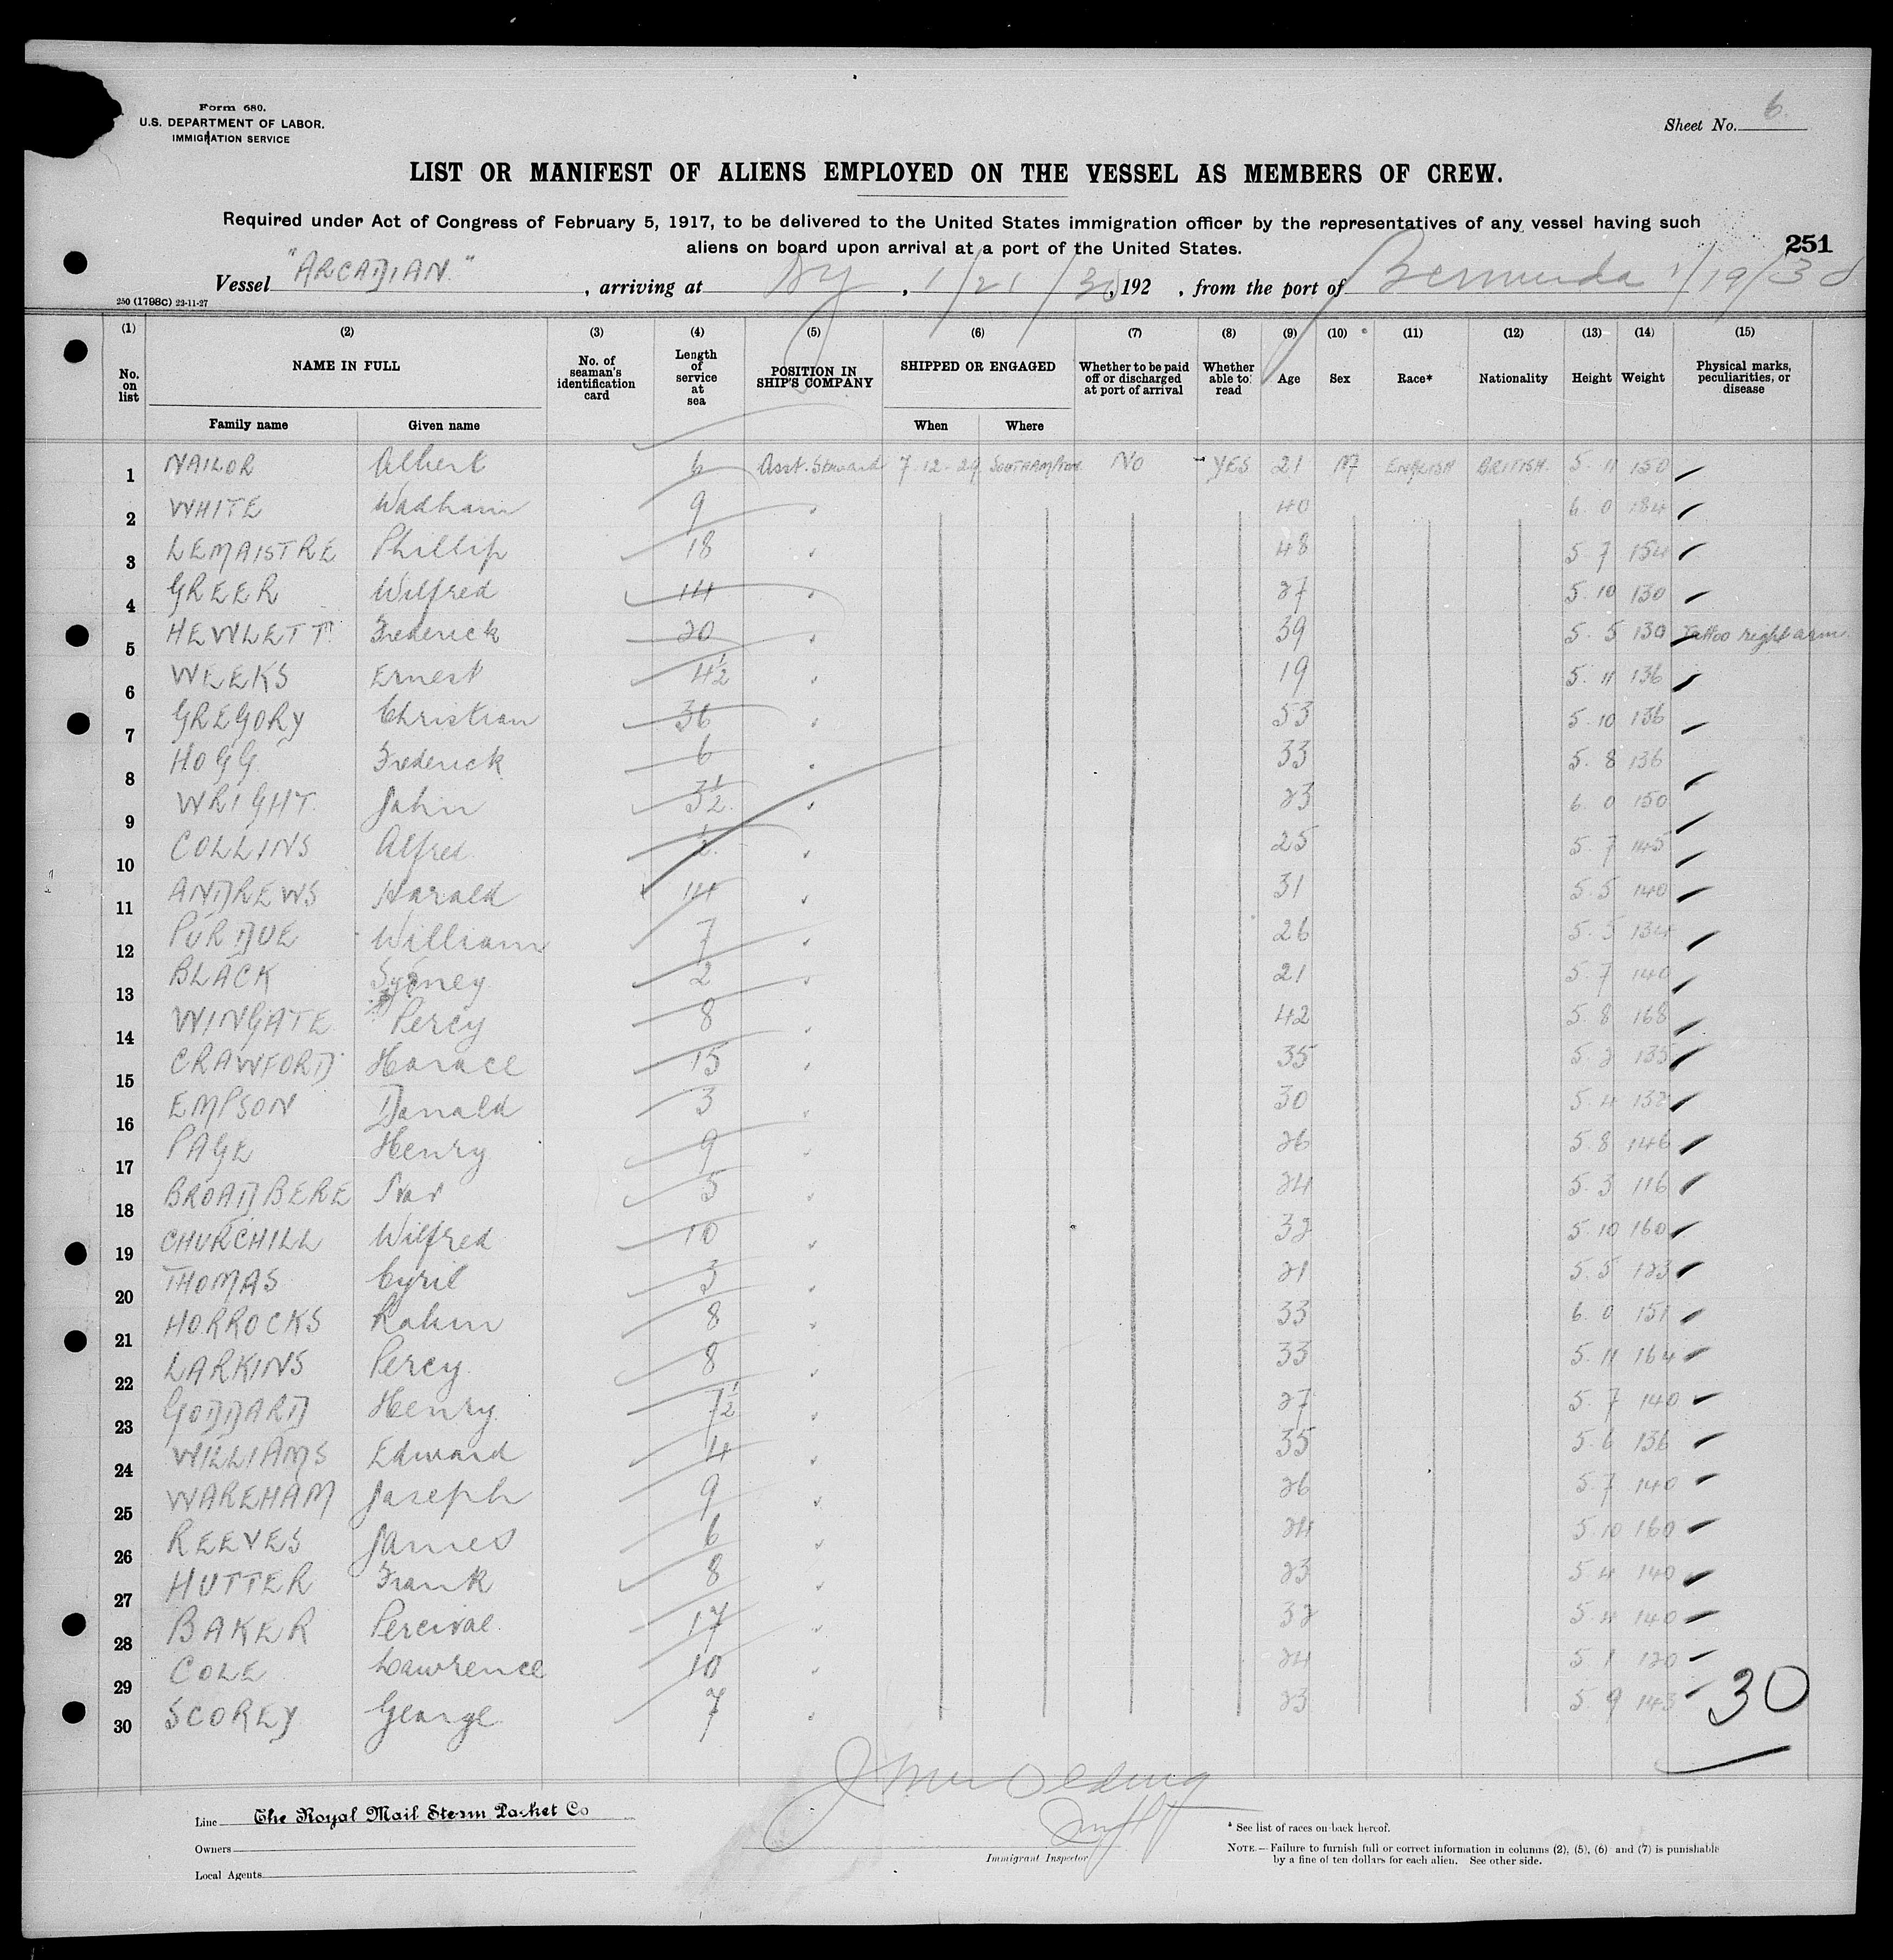 Form 680.
U.S. DEPARTMENT OF LABOR.
IMMIGRATION SERVICE
Sheet No. 6.
LIST OR MANIFEST OF ALIENS EMPLOYED ON THE VESSEL AS MEMBERS OF CREW.
Required under Act of Congress of February 5, 1917, to be delivered to the United States immigration officer by the representatives of any vessel having such
aliens on board upon arrival at a port of the United States.
251
Vessel "ARCADIAN." , arriving at NY , 1/21/30, 192 , from the port of Bermuda 1/19/30
250 (1798C) 22-11-27
(1) (2) (3) (4) (5) (6) (7) (8) (9) (10) (11) (12) (13) (14) (15)
No. on list NAME IN FULL No. of seaman's identification card Length of service at sea POSITION IN SHIP'S COMPANY SHIPPED OR ENGAGED Whether to be paid off or discharged at port of arrival Whether able to read Age Sex Race* Nationality Height Weight Physical marks, peculiarities, or disease
Family name Given name When Where
1 NAILOR Albert 6 Asst. Steward 7.12.29 SOUTHAMPTON NO YES 21 M ENGLISH BRITISH. 5. 11 150
2 WHITE Wadham 9 40 6. 0 184
3 LEMAISTRE Phillip 18 48 5. 7 154
4 GREER Wilfred 14 27 5. 10 130
5 HEWLETT Frederick 20 39 5. 5 130 Tattoo right arm.
6 WEEKS Ernest 4½ 19 5. 11 136
7 GREGORY Christian 36 53 5. 10 136
8 HOGG Frederick 6 33 5. 8 136
9 WRIGHT. John 3½ 23 6. 0 150
10 COLLINS Alfred ½ 25 5. 7 145
11 ANDREWS Harald 14 31 5. 5 140
12 PURDUE William 7 26 5. 5 134
13 BLACK Sydney 2 21 5. 7 140
14 WINGATE Percy 8 42 5. 8 168
15 CRAWFORD Horace 15 35 5. 2 135
16 EMPSON Donald 3 30 5. 4 132
17 PAGE Henry 9 26 5. 8 146
18 BROADBERE 5 24 5. 3 116
19 CHURCHILL Wilfred 10 32 5. 10 160
20 THOMAS Cyril 3 21 5. 5 123
21 HORROCKS 8 33 6. 0 151
22 LARKINS Percy 8 33 5. 11 164
23 GODDARD Henry 7½ 27 5. 7 140
24 WILLIAMS Edward 4 35 5. 6 136
25 WAREHAM Joseph 9 26 5. 7 140
26 REEVES James 6 24 5. 10 160
27 HUTTER Frank 8 23 5. 4 140
28 BAKER Percival 17 32 5. 140
29 COLE Lawrence 10 24 5. 1 120
30 SCOREY George 7 23 5. 9 143
30
Line The Royal Mail Steam Packet Co
Owners
Local Agents
Immigrant Inspector
* See list of races on back hereof.
NOTE.—Failure to furnish full or correct information in columns (2), (5), (6) and (7) is punishable
by a fine of ten dollars for each alien. See other side.